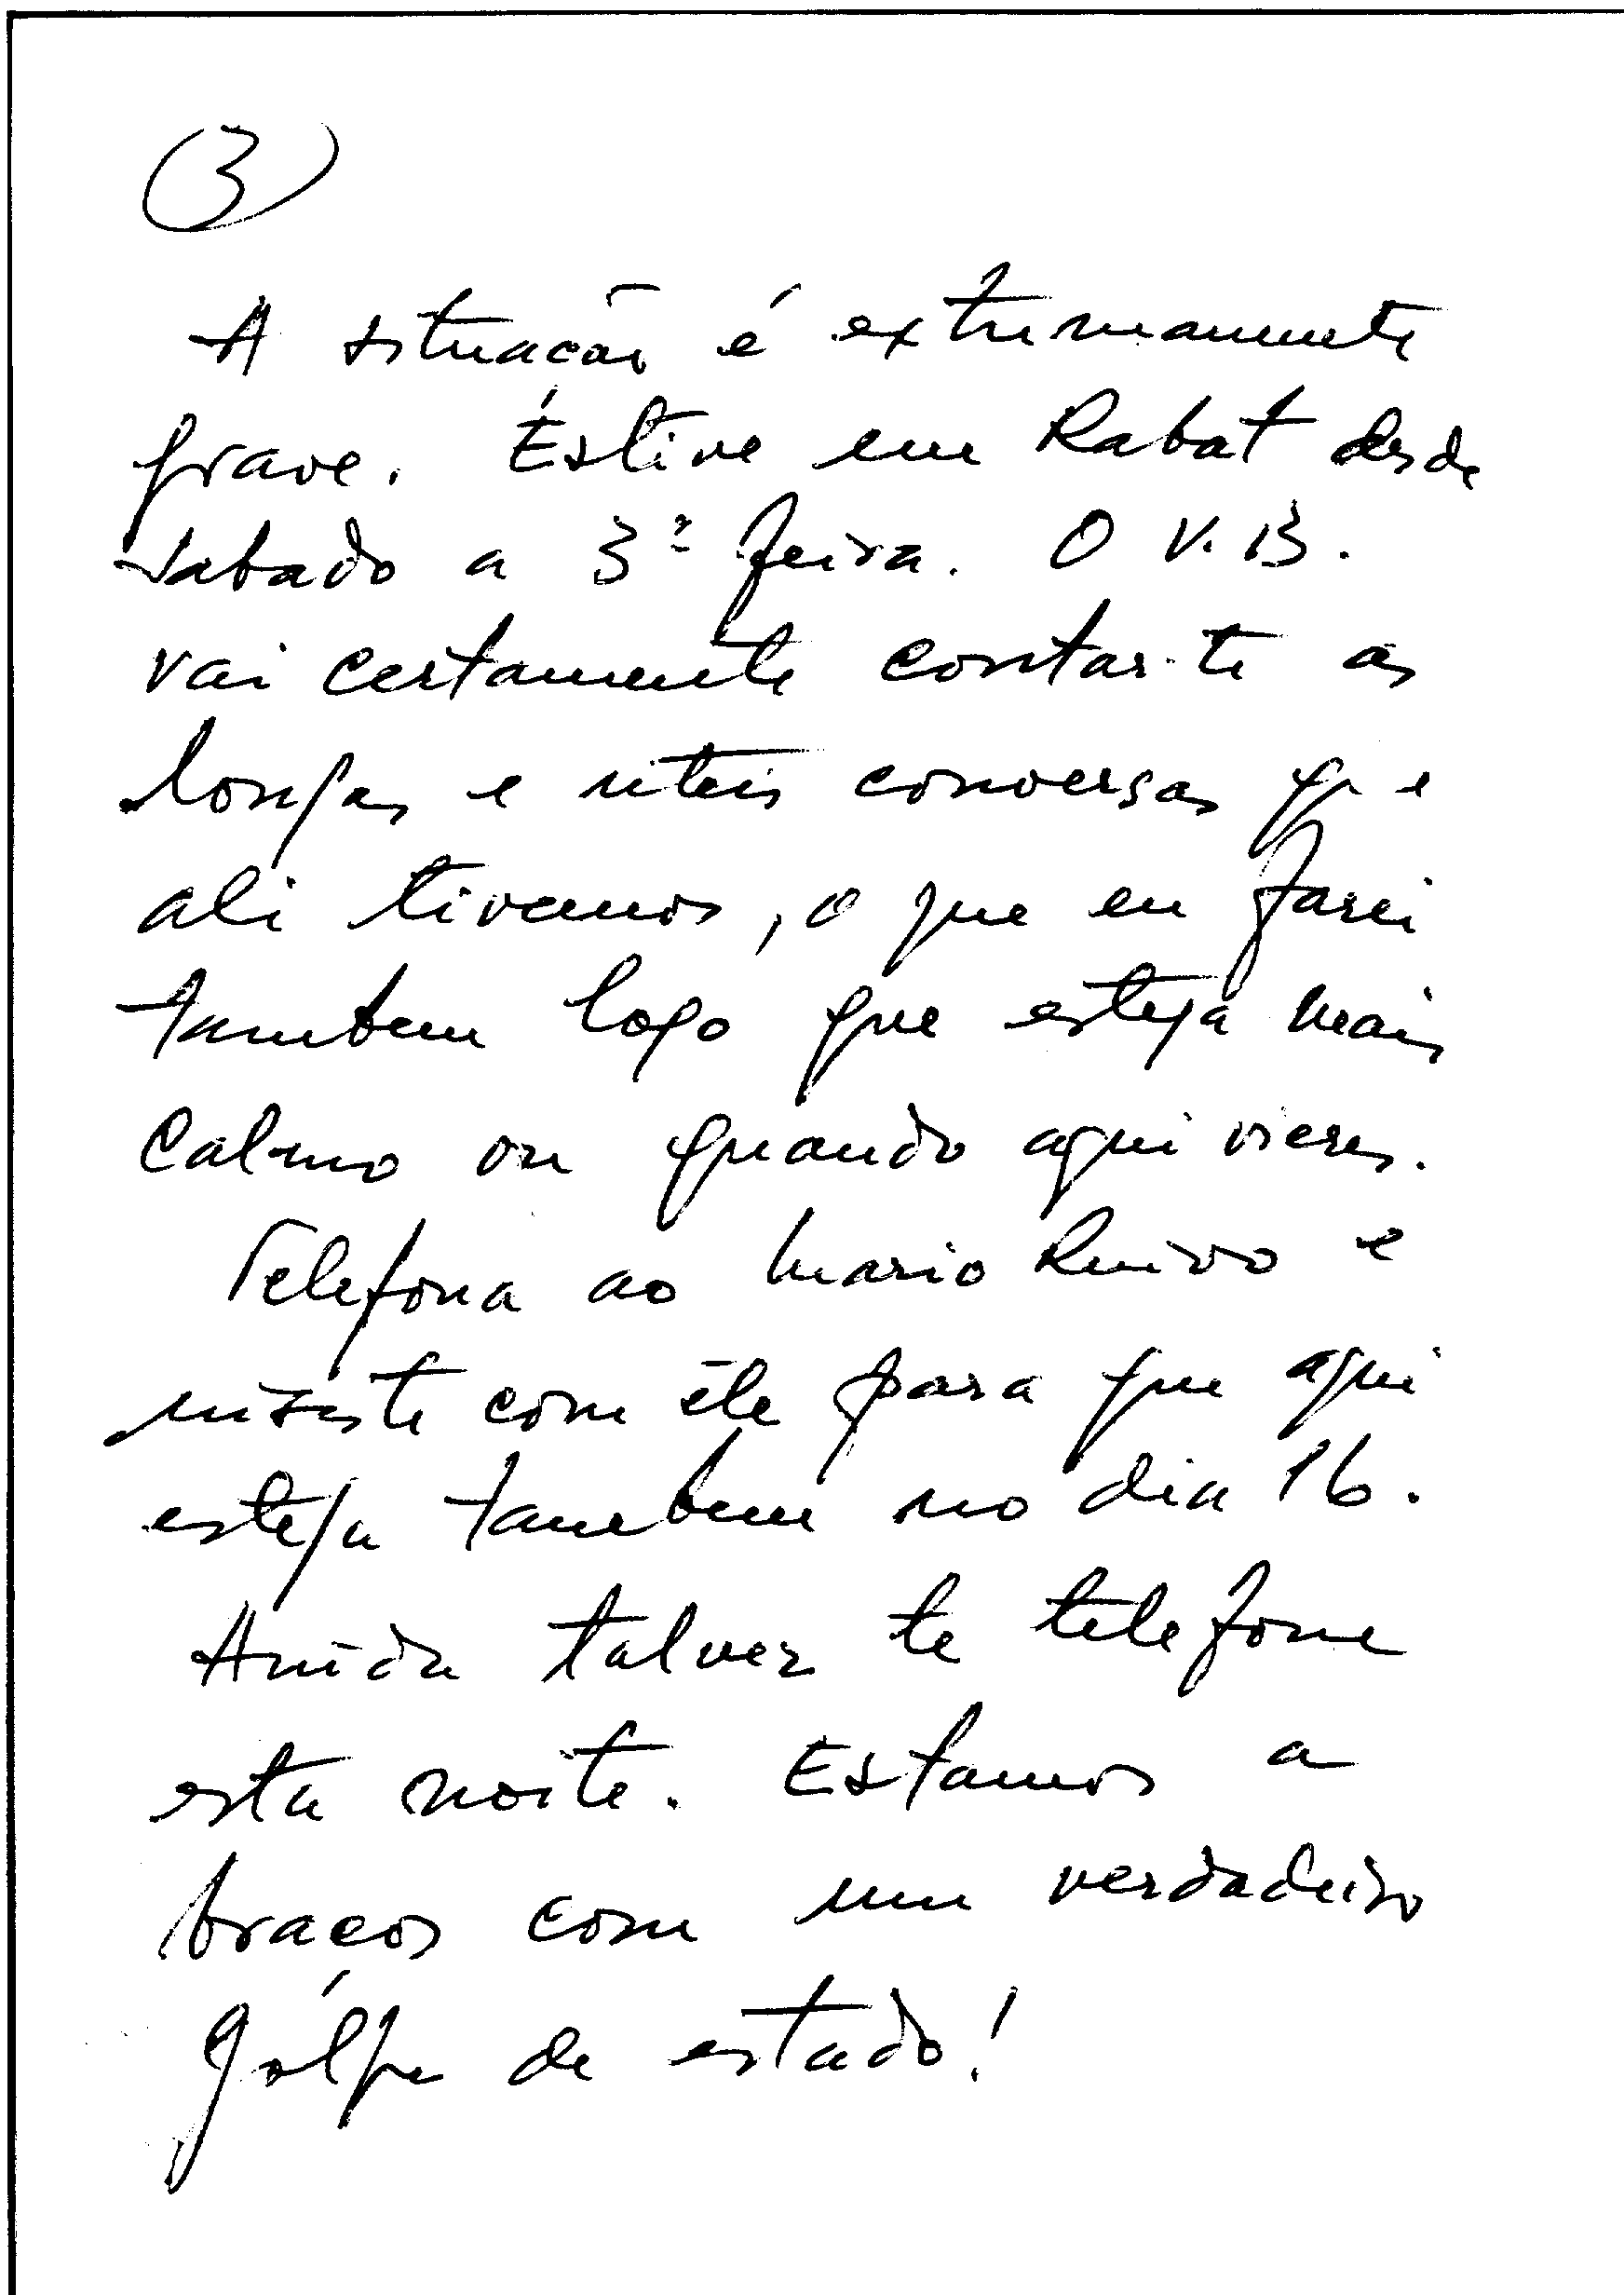 3
A situação é extremamente
grave. Éstive em Rabat desde
sabado a 3ª feira. O V. B.
vai certamente contar-te as
longas e uteis conversas que
ali tivemos, o que eu farei
tambem logo que esteja mais
calmo ou quando aqui vieres.
Telefona ao Mario Ruivo e
insiste com êle para que aqui
esteja tambem no dia 16.
Ainda talvez te telefone
esta noite. Estamos a
braços com um verdadeiro
gólpe de estado!